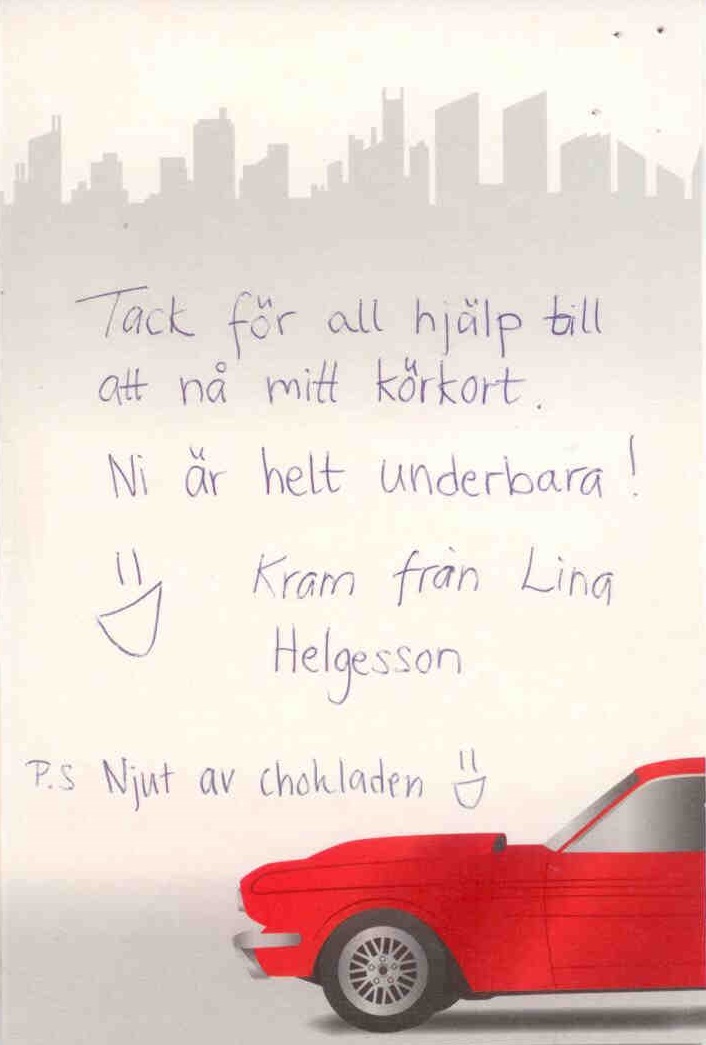 Tack för all hjälp till
att nå mitt körkort.
Ni är helt underbara!
Kram från Lina
Helgesson
P.S Njut av chokladen